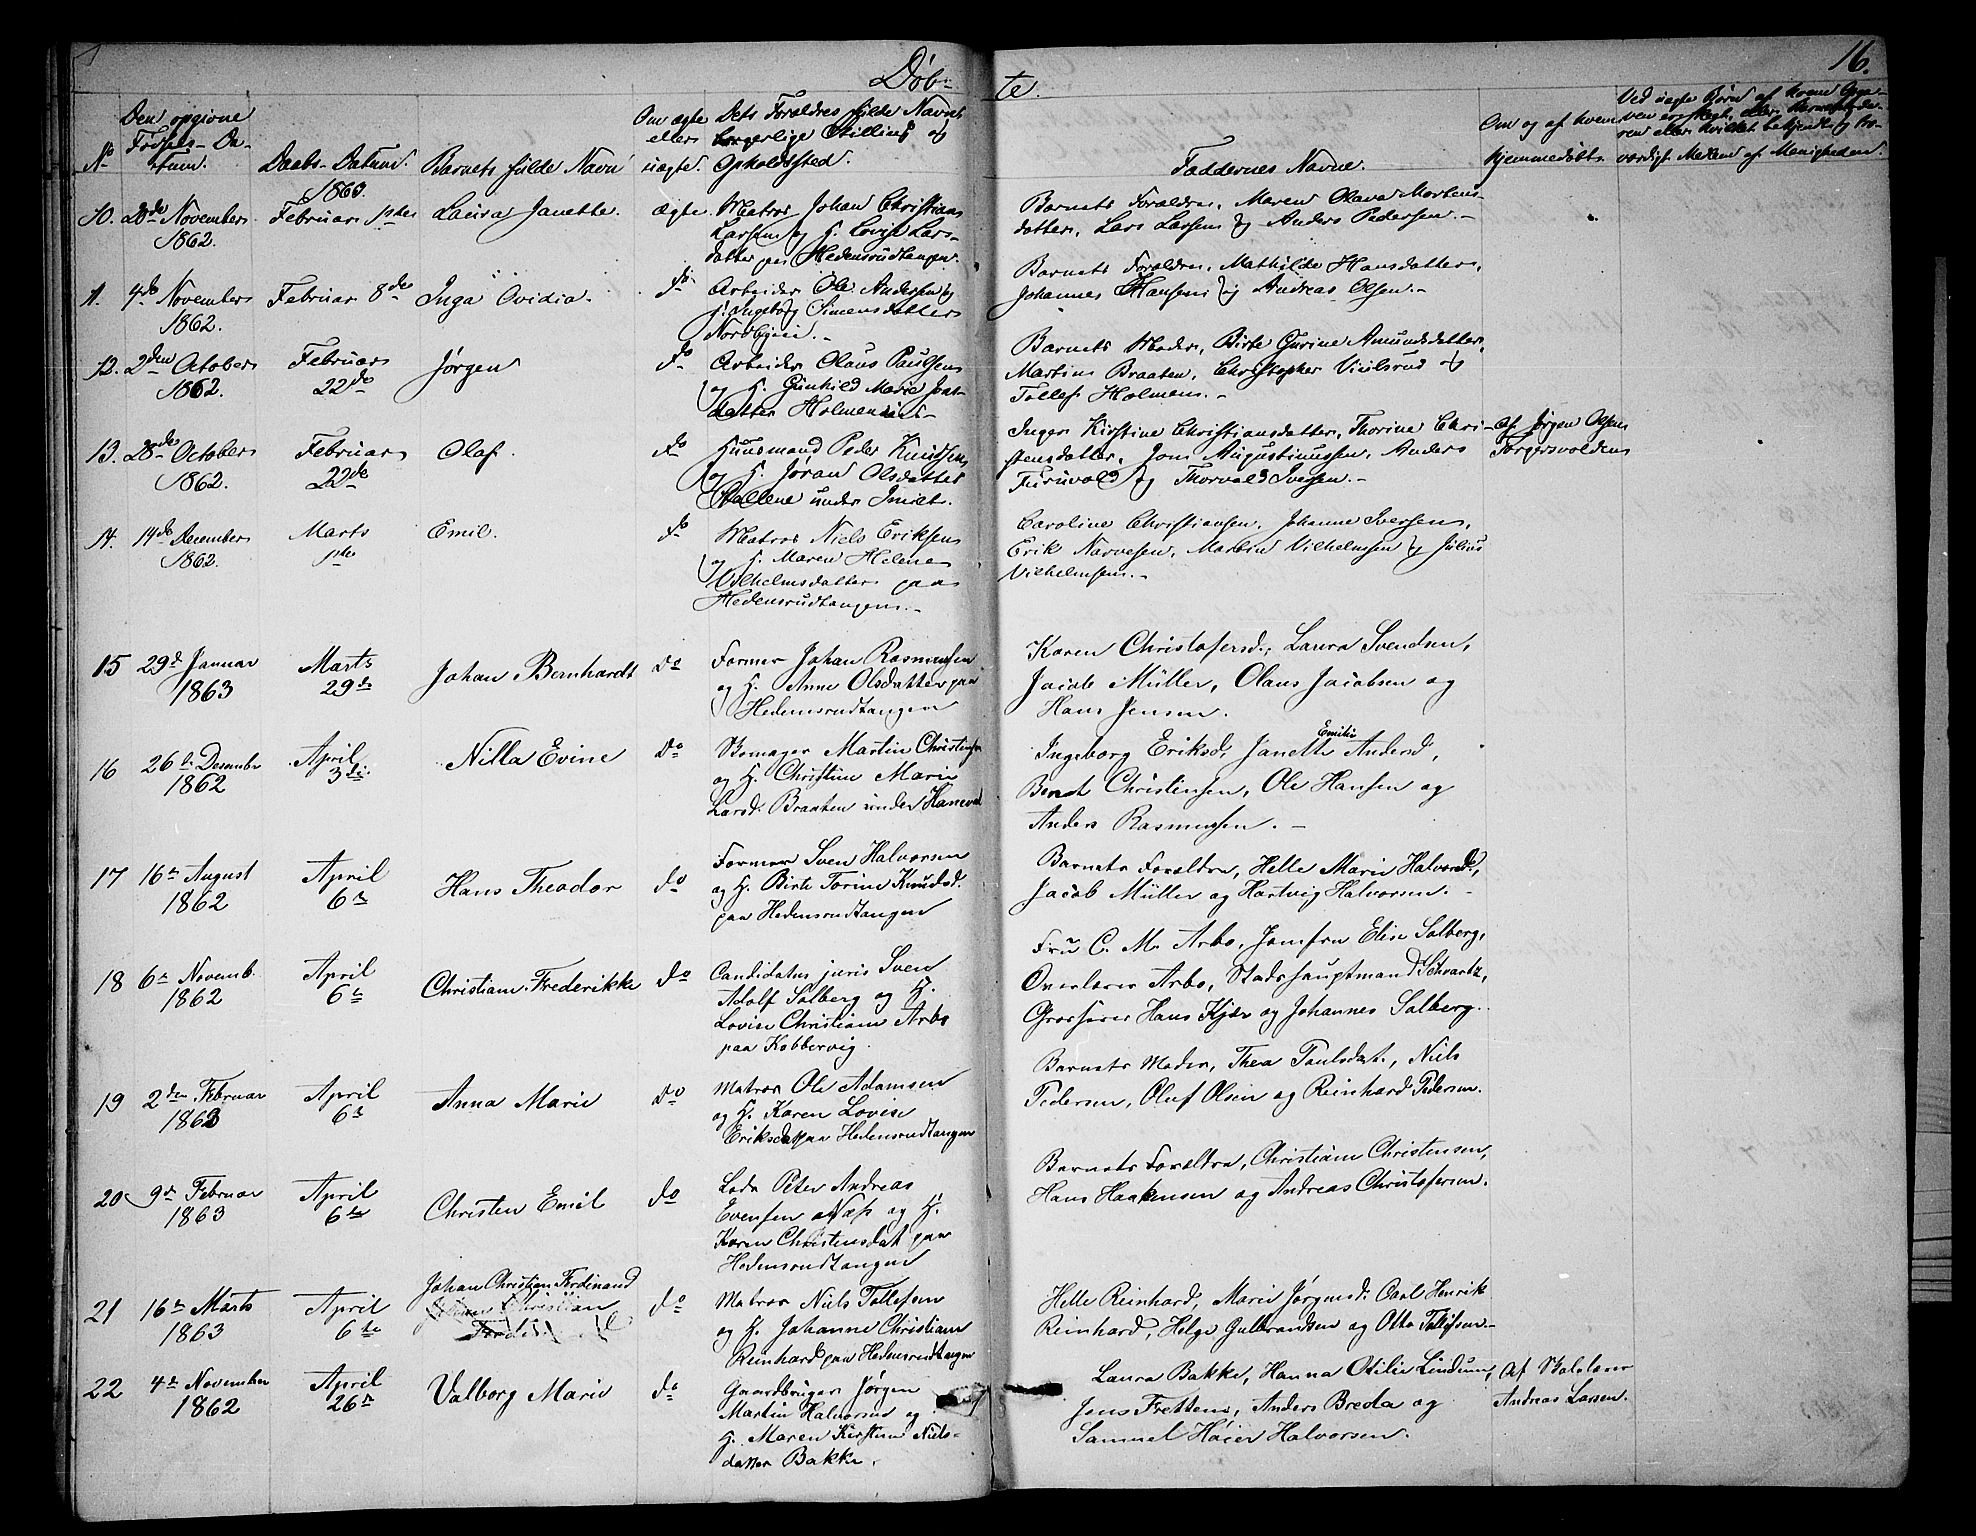 Døb-
te.
16.
No
Den opgivne
Fødsels-Da-
tum.
Daabs-Datum.
1863.
Barnets fulde Navn
Om ægte
eller
uægte.
Dets Forældres fulde Navne
borgerlige Stilling og
Opholdssted.
Faddernes Navne.
Om og af hvem
hjemmedøbt.
Ved uægte Børn af hvem Opga-
ven er skeet, eller
ren eller hvilket bekjendt og tro-
værdigt Medlem af Menigheden.
10. 20de November
1862.
Februar 1ste
Laura Janette.
ægte.
Matros Johan Christian
Larsen og H. Lovise Lars-
datter paa Hedensrudtangen.
Barnets Forældre, Maren Olava Mortens-
datter, Lars Larsen og Anders Pedersen.-
11. 4de November
1862.
Februar 8de
Inga Ovidia.
do
Arbeider Ole Andersen og
H. Ingeborg Simensdatter
Nordbyeie.-
Barnets Forældre, Mathilde Hansdatter,
Johannes Hansen og Andreas Olsen.-
12. 2den October
1862.
Februar
22de
Jørgen
do
Arbeider Olaus Paulsen
og H. Gunhild Marie
datter Holmen
Barnets Moder, Birte Gurine Amundsdatter,
Martin Braaten, Christopher og
Tollef Holmen.-
13. 28de October
1862.
Februar
22de
Olaf.
do
Huusmand Peder Knudsen
og H. Joran Olsdatter
under
Inger Kirstine Christiansdatter, Thorine Chri-
stensdatter, Jens Augustinussen, Anders
Furuvald og Thorvald Iversen.-
Af Jørgen Olsen
Torgersvolden
14. 14de December
1862.
Marts
1ste
Emil.
do
Matros Niels Eriksen
og H. Maren Helene
Vilhelmsdatter paa
Hedensrudtangen.-
Caroline Christiansen, Johanne Iversen,
Erik Narvesen, Martin Vilhelmsen og Julius
Vilhelmsen.-
15 29de Januar
1863
Marts
29de
Johan Bernhardt
do
Former Johan Rasmussen
og H. Anne Olsdatter paa
Hedensrudtangen
Karen Christofersd., Laura Svendsen,
Jacob Müller, Olaus Jacobsen og
Hans Jensen.
16 26de December
1862
April
3die
Nilla Evine
do
Skomager Martin Christensen
og H. Christine Marie
Larsd. Braaten under Haneval
Ingeborg Eriksd, Janette Emilie Andersd,
Berndt Christensen, Ole Hansen og
Anders Rasmussen.-
17 16de August
1862
April
6te
Hans Theodor
do
Former Sven Halvorsen
og H. Birte Torine Knudsd.
paa Hedensrudtangen
Barnets Forældre, Helle Marie Halvorsd,
Jacob Müller og Hartvig Halvorsen.-
18 6te Novemb.
1862
April
6te
Christiane Frederikke
do
Candidatus juris Sven
Adolf Solberg og H.
Lovise Christiane Arbo
paa Kobbervig.
Fru C. M. Arbo, Jomfru Elise Solberg,
Overlærer Arbo, Stadshauptmand Schvartz,
Grosserer Hans Kjær og Johannes Solberg.
19 2den Februar
1863
April
6te
Anna Marie
do
Matros Ole Adamsen
og H. Karen Lovise
Eriksdat paa Hedensrudtangen
Barnets Moder, Thea Paulsdat., Niels
Pedersen, Oluf Olsen og Reinhard Pedersen.
20 9de Februar
1863
April
6te
Christen Emil
do
Lods Peter Andreas
Evensen Næss og H.
Karen Christensdat paa
Hedensrudtangen
Barnets Forældre, Christiane Christensen,
Hans Haakensen og Andreas Christofersen.
21 16de Marts
1863
April
6te
Johan Christian Ferdinand
do
Matros Niels Tollefsen
og H. Johanne Christiane
Reinhard paa Hedensrudtangen
Helle Reinhard, Marie Jørgensd. Carl Henrik
Reinhard, Helge Gulbrandsen og Otto Tollefsen.-
22 4de November
1862
April
26de
Valborg Marie
do
Gaardbruger Jørgen
Martin Halvorsen og
H. Maren Kirstine Niels-
datter Bakke.
Laura Bakke, Hanna Otilie Lindum,
Jens Fretten, Anders Breda og
Samuel Høier Halvorsen.
Af Skolelærer
Andreas Larsen.